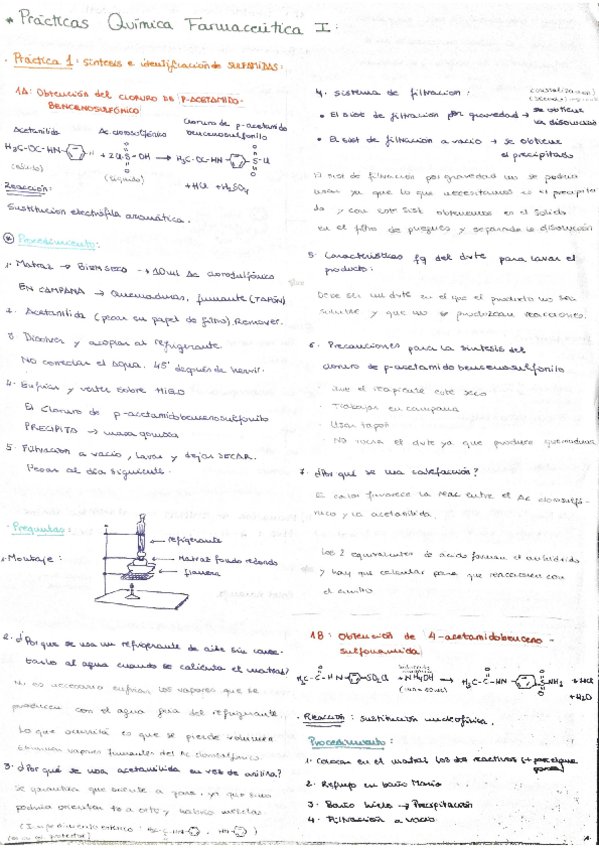 * Prácticas Química Farmacéutica I:
· Práctica 1: síntesis e identificación de SULFAMIDAS:
1A: Obtención del CLORURO DE P-ACETAMIDO-
BENCENOSULFÓNICO
Acetanilida Ac. clorosulfónico Cloruro de p-acetamido
bencenosulfónico
H3C-OC-HN- + 2Cl-S-OH → H3C-OC-HN- -S-Cl
(sólido) (líquido) + HCl + H2SO4
Reacción:
Sustitución electrófila aromática.
Procedimiento:
1. Matraz → BIEN SECO → 10ml Ac clorosulfónico
EN CAMPANA → Quemaduras, fumante (TAPÓN)
2. Acetanilida (pesar en papel de filtro). Remover.
3. Disolver y acoplar al refrigerante.
NO conectar el agua. 45' después de hervir.
4. Enfriar y verter sobre HIELO
El cloruro de p-acetamidobencenosulfonilo
PRECIPITA → masa gomosa
5. Filtración a vacío, lavar y dejar SECAR.
Pesar al día siguiente.
· Preguntas:
1. Montaje:
refrigerante
Matraz fondo redondo
2. ¿Por qué se usa un refrigerante de aire sin conec-
tarlo al agua cuando se calienta el matraz?
No es necesario enfriar los vapores que se
producen con el agua fría del refrigerante.
Lo que ocurriría es que se
vapores fumantes del Ac clorosulfónico.
3. ¿Por qué se usa acetanilida en vez de anilina?
Se garantiza que oriente a para, ya que sino
podría orientar to a orto y habría mezclas
(Impedimento estérico:
4. Sistema de filtración:
• El sist de filtración por gravedad → se obtiene
la disolución
• El sist de filtración a vacío → se obtiene
el precipitado
El sist de filtración por gravedad no se podría
usar ya que lo que necesitamos es el precipita-
do y con este sist obtenemos en el sólido
en el filtro de pliegues y separado la disolución
5. Características fq del dvte para lavar el
producto:
Debe ser un dvte en el que el producto no sea
soluble y que no se produzcan reacciones.
6. Precauciones para la síntesis del
cloruro de p-acetamidobencenosulfonilo
· Que el recipiente esté seco
· Trabajar en campana
· Usar tapón
· NO tocar el dvte ya que produce quemaduras
7. ¿Por qué se usa calefacción?
El calor favorece la reac entre el Ac clorosulfó-
nico y la acetanilida.
Los 2 equivalentes de ácido forman el anhídrido
y hay que calentar para que reaccionen con
el anillo
1B: Obtención de 4-acetamidobenceno-
sulfonamida
H3C-C-HN- SO2Cl + NH4OH → H3C-C-HN- -S-NH2 + HCl
+ H2O
· Reacción: sustitución nucleófila.
Procedimiento:
1. Colocar en el matraz los dos reactivos
2. Reflujo en baño María
3. Baño hielo → Precipitación
4. Filtración a vacío